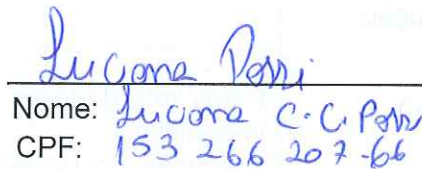 Luciana Possi
Nome: Luciana C. C. Possi
CPF: 153 266 207-66